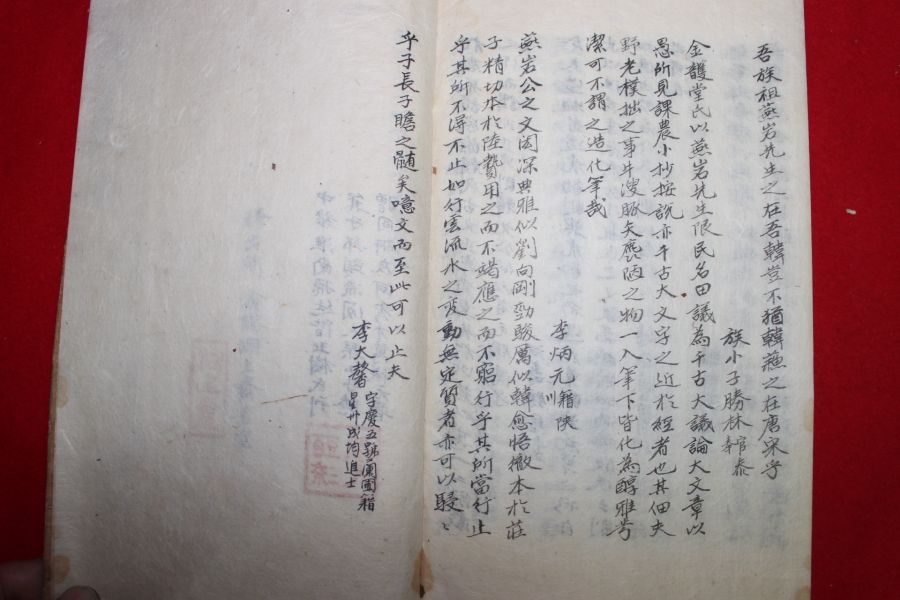 吾族祖燕岩先生之在吾韓豈不猶韓蘇之在唐宋乎
族小子勝林
金頀堂氏以燕岩先生限民名田議為千古大議論大文章以
愚所見課農小抄按說亦千古大文字之近於經者也其佃夫
野老樸拙之事牛溲豚矢麁陋之物一入筆下皆化為醇雅芳
潔可不謂之造化筆哉
李炳元籍陜川
燕岩公之文閎深典雅似劉向剛勁駿厲似韓愈悟撤本於莊
子精切本於陸贄用之而不竭應之而不窮行乎其所當行止
乎其所不得不止如行雲流水之変動無定質者亦可以駸〻
乎子長子瞻之髓矣噫文而至此可以止夫
李大馨 字慶五號蘭囿籍
星州成均進士